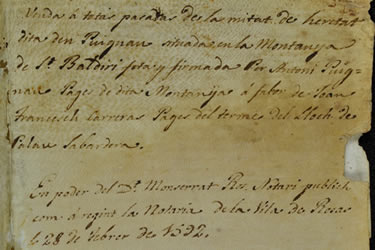 Venda á totas pasadas de la mitat de heretat
dita den Puignau situada en la Montanya
de St. Baldiri feta y firmada Per Antoni Puig=
nau Pages de dita Montanya á fabor de Joan
Francesch Carreras Pages del terme del Lloch de
Palau Sabardera.
En poder del Dr. Monserrat Ros. Notari publich
com á regint la Notaria de la Vila de Rosas
á 28 de febrer de 1592.